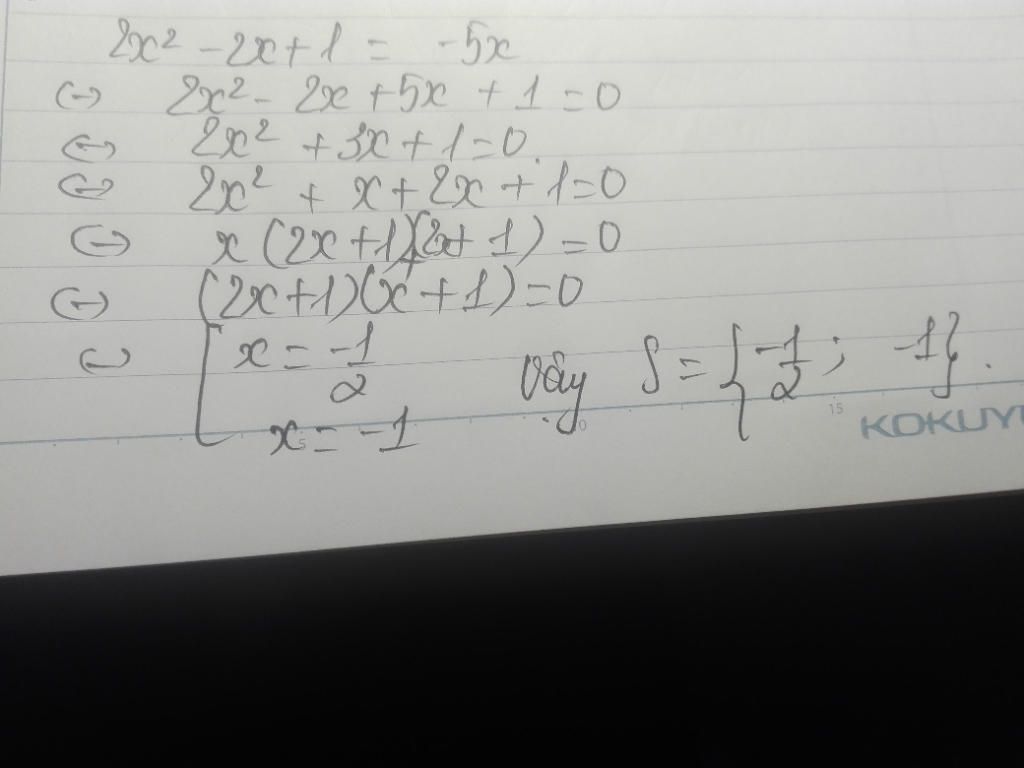 2x² - 2x + 1 = -5x
(-) 2x² - 2x + 5x + 1 = 0
(-) 2x² + 3x + 1 = 0.
(-) 2x² + x + 2x + 1 = 0
(-) x (2x + 1)+(2x + 1) = 0
(-) (2x + 1)(x + 1) = 0
(-) [ x = -1/2
x = -1
Vậy S = {-1/2 ; -1}.
5
10
15
KOKUY